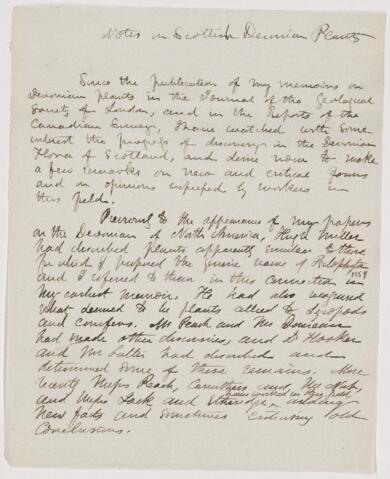 Notes on Scottish Devonian Plants
Since the publication of my memoirs on
Devonian plants in the Journal of the Geological
Society of London, and in the Reports of the
Canadian Survey, I have watched with some
interest the progress of discovery in the Devonian
Flora of Scotland, and desire now to make
a few remarks on new and critical forms
and on opinions expressed by workers in
this field.
Previous to the appearance of my papers
on the Devonian of North America, Hugh Miller
had described plants apparently similar to those
for which I proposed the generic name of Psilophyton
1859
and I referred to them in this connection in
my earliest memoir. He had also recognized
what seemed to be plants allied to Lycopods
and conifers. Mr Peach and Mr Duncan
had made other discoveries, and Dr Hooker
and Mr Salter had described and
determined some of these remains. More
recently Messrs Peach, Carruthers and
have worked in this field
and Messrs Jack and Etheridge, adding
new facts and sometimes old
conclusions.